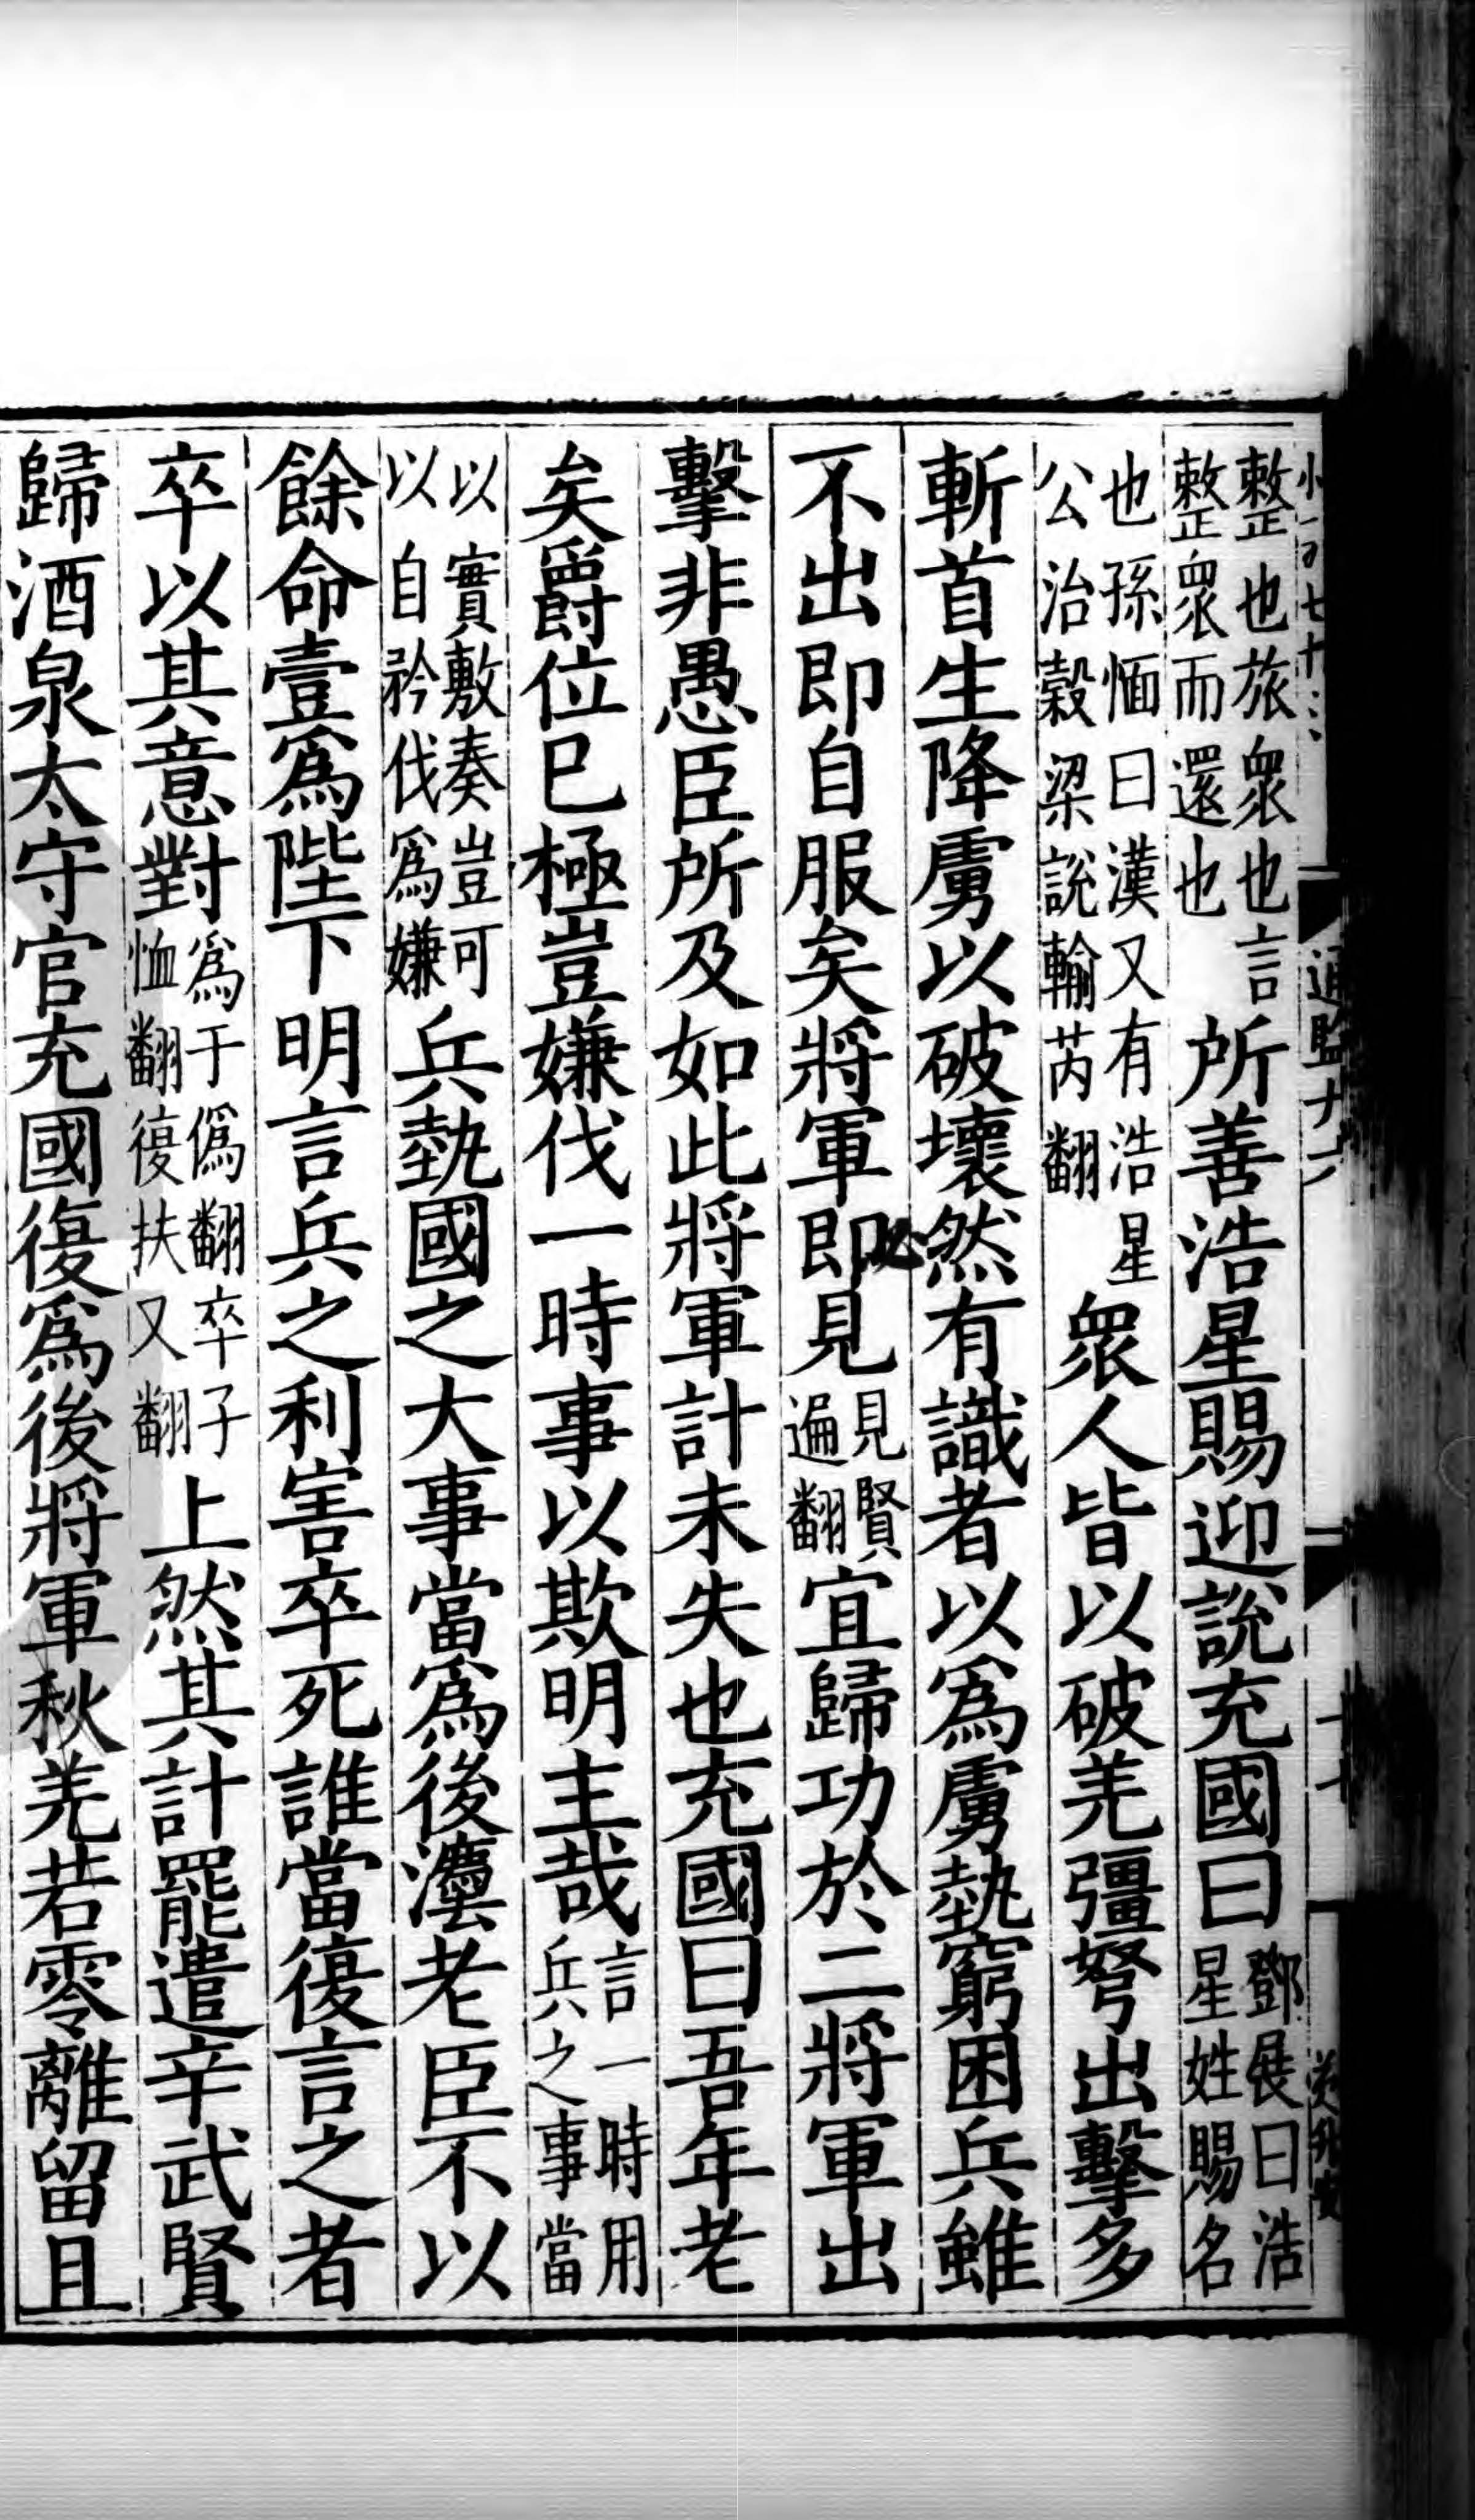 整也旅衆也言整衆而還也所善浩星賜迎説充國曰鄧展曰浩星姓賜名
也孫愐曰漢又有浩星公治穀梁説輸芮翻衆人皆以破羌彊弩出擊多
斬首生降虜以破壞然有識者以爲虜埶窮困兵雖
不出即自服矣將軍即必見見賢遍翻宜歸功於二將軍出
擊非愚臣所及如此將軍計未失也充國曰吾年老
矣爵位已極豈嫌伐一時事以欺明主哉言一時用兵之事當
以實敷奏豈可以自矜伐爲嫌兵埶國之大事當爲後灋老臣不以
餘命壹爲陛下明言兵之利害卒死誰當復言之者
卒以其意對爲于僞翻卒子恤翻復扶又翻上然其計罷遣辛武賢
歸酒泉太守官充國復爲後將軍秋羌若零離留且